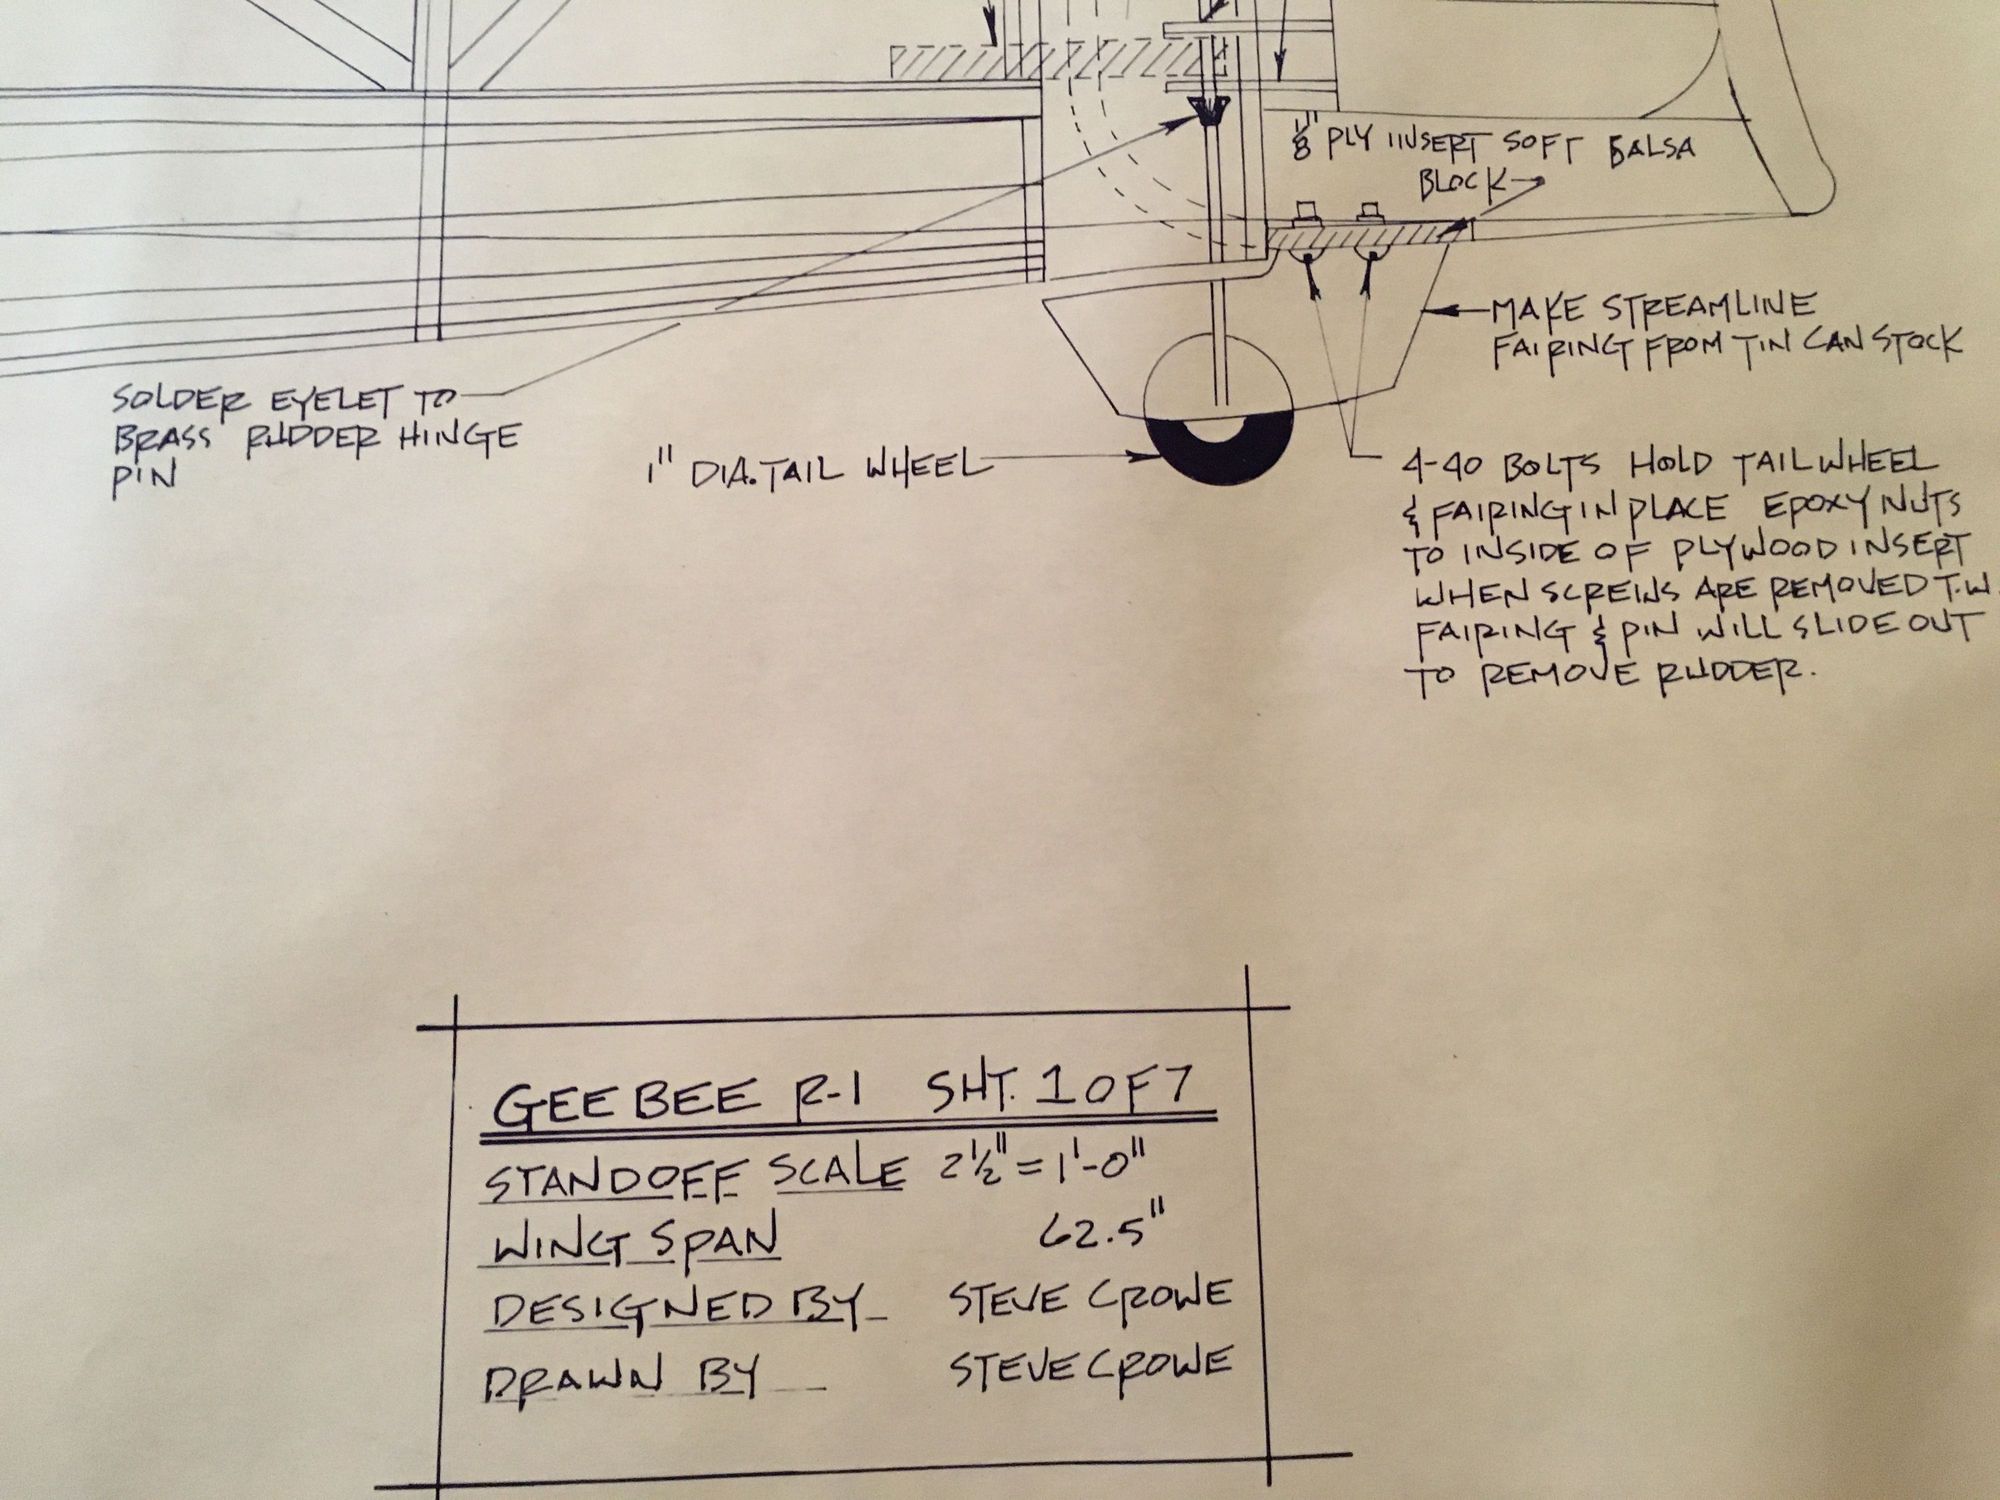 1/8" PLY INSERT SOFT BALSA
BLOCK
MAKE STREAMLINE
FAIRING FROM TIN CAN STOCK
SOLDER EYELET TO
BRASS RUDDER HINGE
PIN
1" DIA. TAIL WHEEL
4-40 BOLTS HOLD TAIL WHEEL
& FAIRING IN PLACE EPOXY NUTS
TO INSIDE OF PLYWOOD INSERT
WHEN SCREWS ARE REMOVED T.W.
FAIRING & PIN WILL SLIDE OUT
TO REMOVE RUDDER.
GEE BEE R-1 SHT. 1 OF 7
STANDOFF SCALE 2 1/2" = 1'-0"
WING SPAN 62.5"
DESIGNED BY STEVE CROWE
DRAWN BY STEVE CROWE